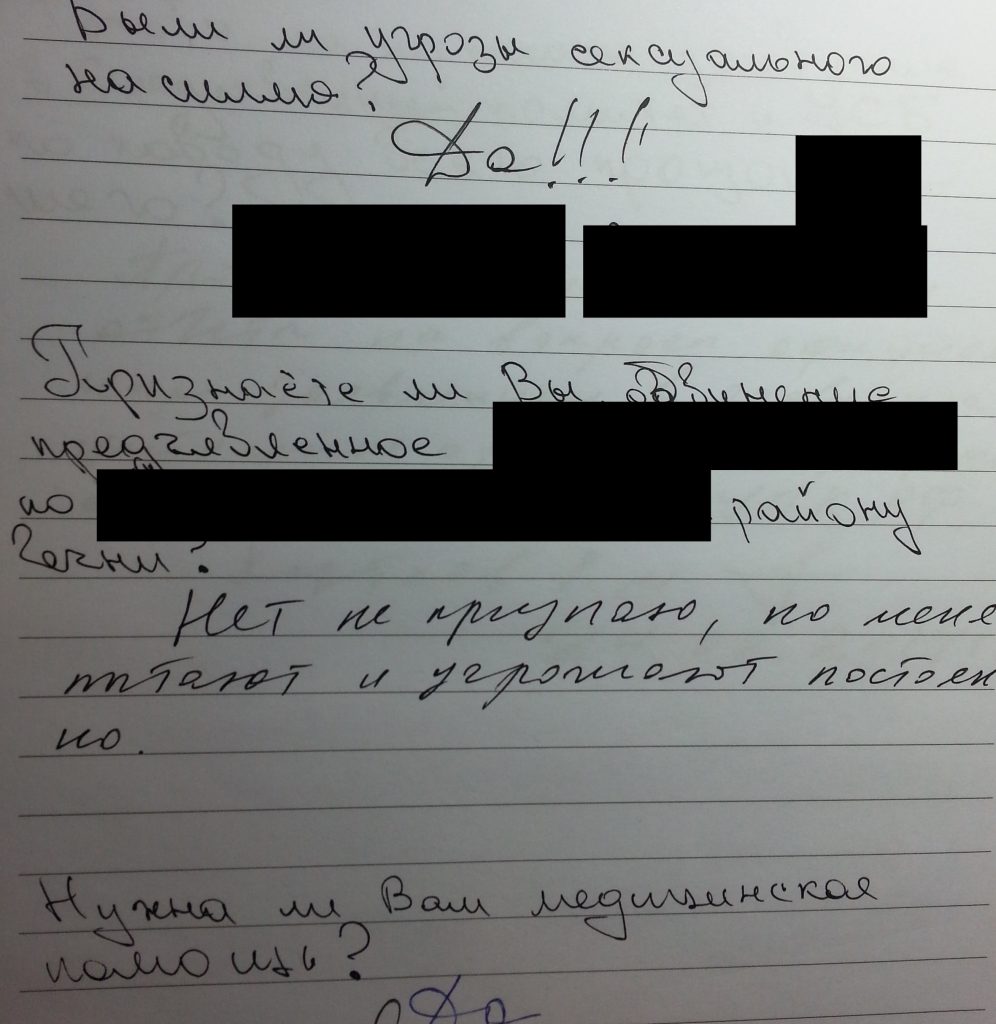 Были ли угрозы сексуального
насилия?
Да!!!
Признаёте ли Вы обвинение
предъявленное
по району
Чечни?
Нет не признаю, но меня
пытают и угрожают постоен
но.
Нужна ли Вам медицинская
помощь?
Да